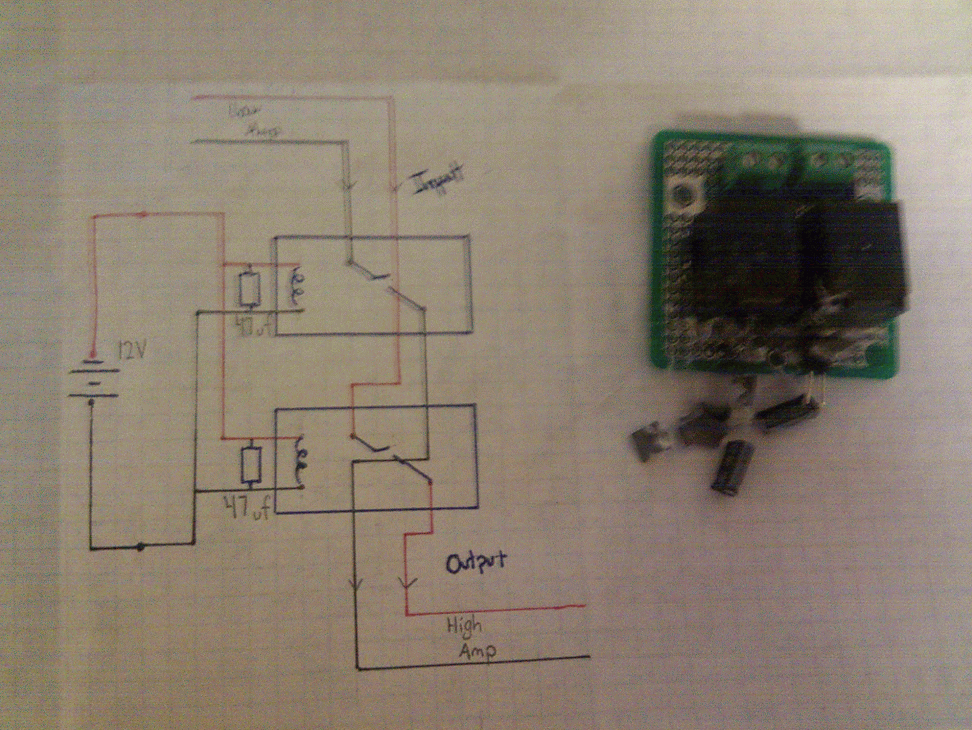 Input
12V
47uf
47uf
Output
High
Amp